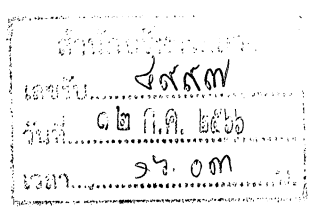 เลขรับ ๔๙๙๗
วันที่ ๑๒ ก.ค. ๒๕๖๖
เวลา ๑๖.๐๓ น.